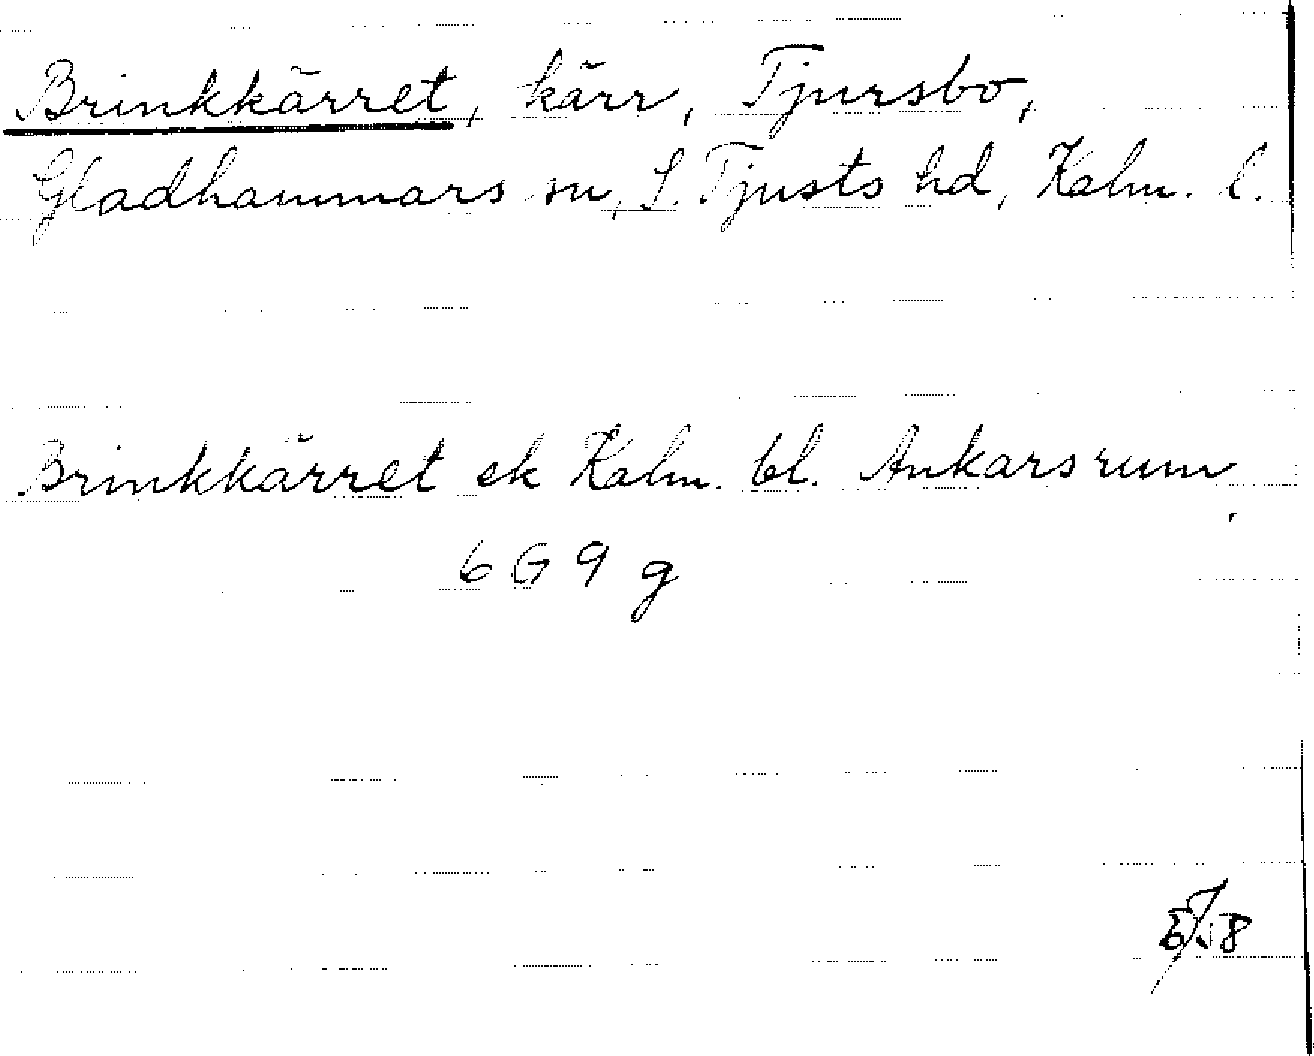 Brinkkärret, kärr, Tjursbo,
Gladhammars sn, S. Tjusts hd, Kalm. l.
Brinkkärret ek Kalm. bl. Ankarsrum
6 G 9 g